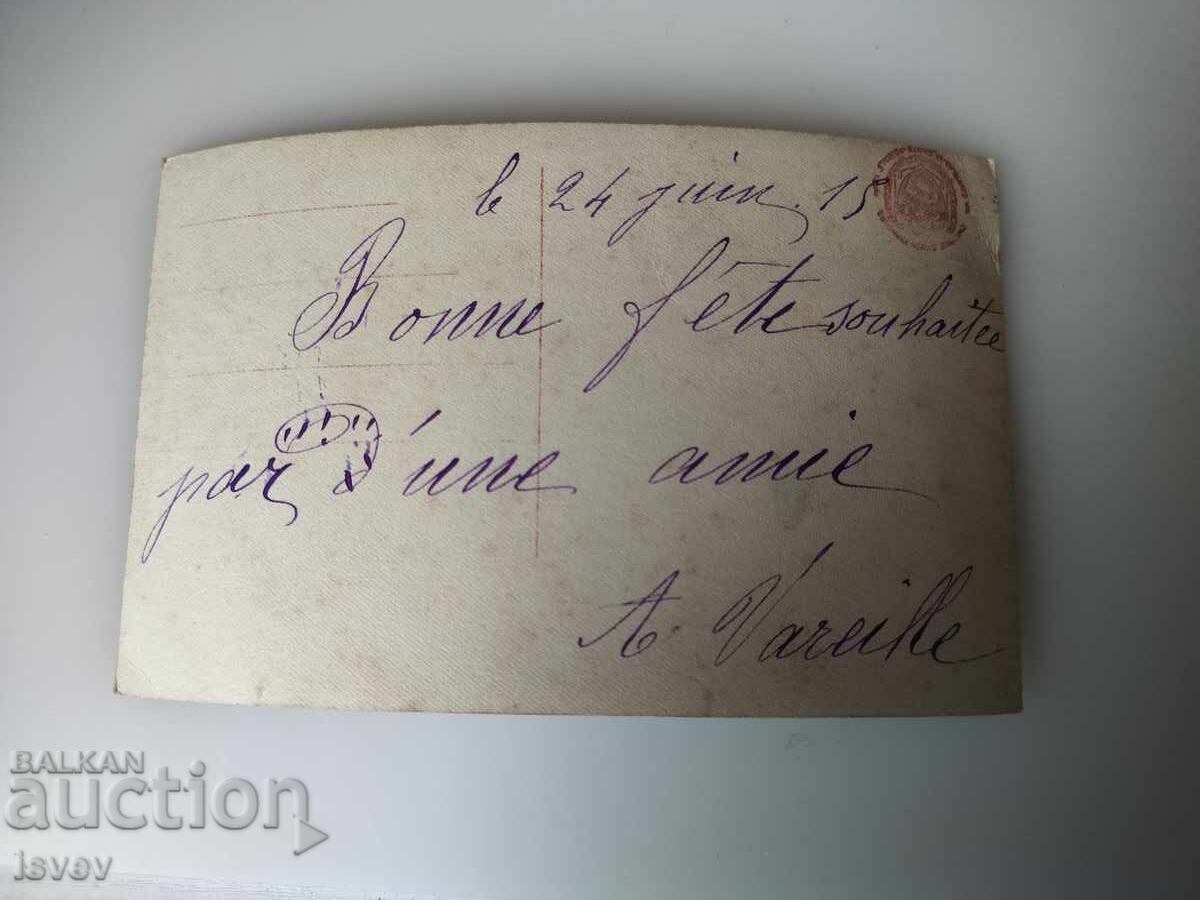 le 24 juin. 15
Bonne fête souhaitée
par d'une amie
A. Vareille
BALKAN
auction
isvev